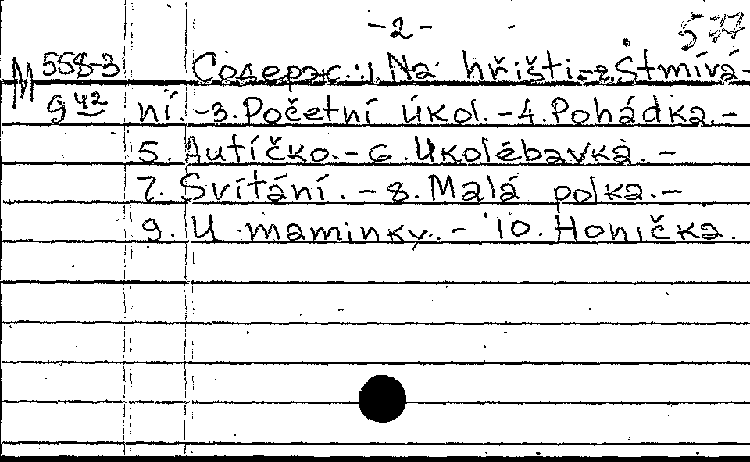 - 2 -
577
М 558-3 Содерж.: 1. Na hřišti. - 2. Stmívá-
9 42 ní. - 3. Početní úkol. - 4. Pohádka. -
5. Autíčko. - 6. Ukolébavka. -
7. Svítání. - 8. Malá polka. -
9. U maminky. - 10. Honička.